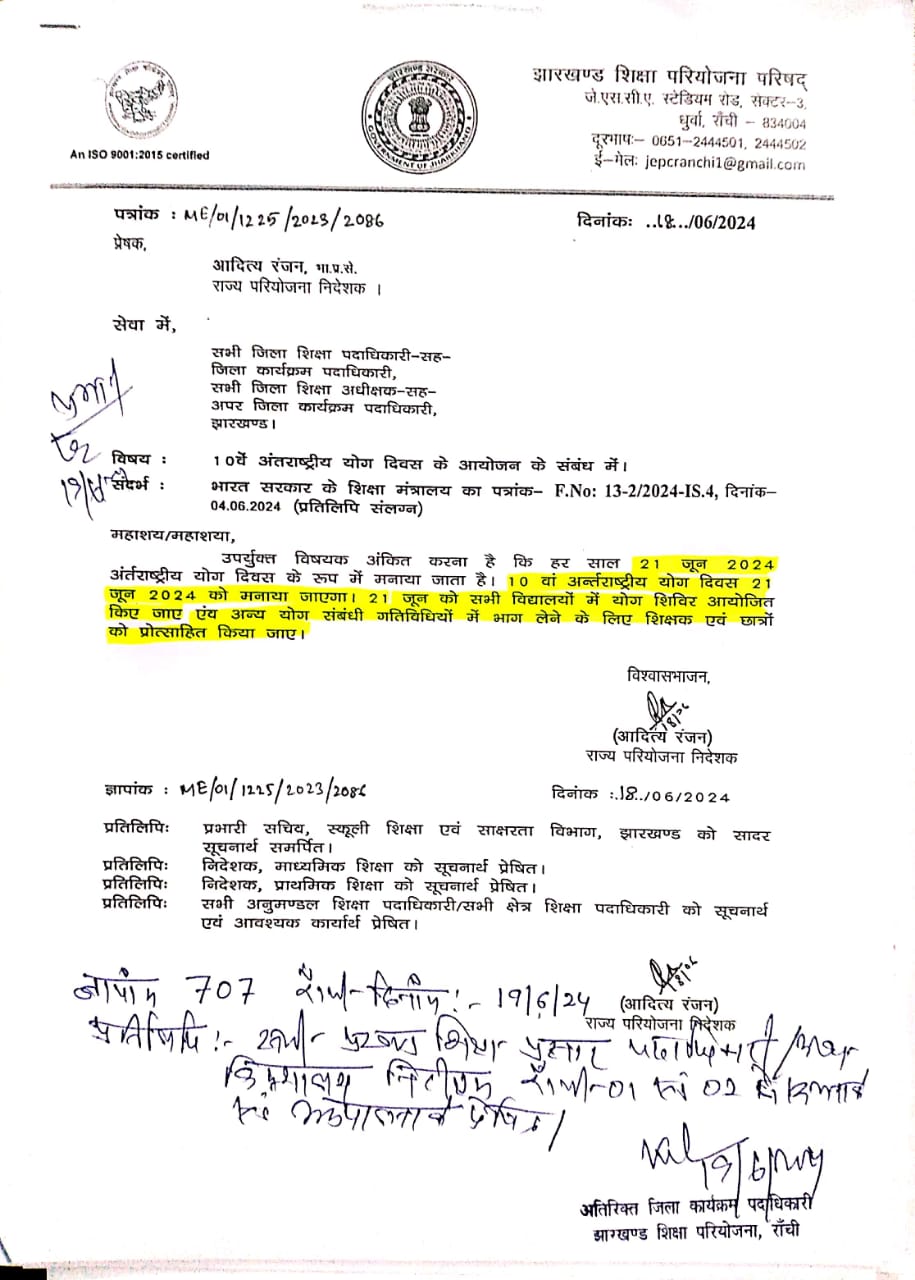 झारखण्ड शिक्षा परियोजना परिषद्
जे.एस.सी.ए. स्टेडियम रोड, सेक्टर–3,
धुर्वा, राँची – 834004
दूरभाषः– 0651–2444501, 2444502
ई–मेलः jepcranchi1@gmail.com
An ISO 9001:2015 certified
झारखण्ड सरकार
GOVERNMENT OF JHARKHAND
पत्रांक : ME/01/1225/2023/2086 दिनांकः ..18../06/2024
प्रेषक,
आदित्य रंजन, भा.प्र.से.
राज्य परियोजना निदेशक ।
सेवा में,
सभी जिला शिक्षा पदाधिकारी–सह–
जिला कार्यक्रम पदाधिकारी,
सभी जिला शिक्षा अधीक्षक–सह–
अपर जिला कार्यक्रम पदाधिकारी,
झारखण्ड।
विषय : 10वें अंतराष्ट्रीय योग दिवस के आयोजन के संबंध में।
संदर्भ : भारत सरकार के शिक्षा मंत्रालय का पत्रांक– F.No: 13-2/2024-IS.4, दिनांक–
04.06.2024 (प्रतिलिपि संलग्न)
महाशय/महाशया,
उपर्युक्त विषयक अंकित करना है कि हर साल 21 जून 2024
अंर्तराष्ट्रीय योग दिवस के रूप में मनाया जाता है। 10 वां अर्न्तराष्ट्रीय योग दिवस 21
जून 2024 को मनाया जाएगा। 21 जून को सभी विद्यालयों में योग शिविर आयोजित
किए जाए एंव अन्य योग संबंधी गतिविधियों में भाग लेने के लिए शिक्षक एवं छात्रों
को प्रोत्साहित किया जाए।
विश्वासभाजन,
18/06
(आदित्य रंजन)
राज्य परियोजना निदेशक
ज्ञापांक : ME/01/1225/2023/2086 दिनांक :.18../06/2024
प्रतिलिपिः प्रभारी सचिव, स्कूली शिक्षा एवं साक्षरता विभाग, झारखण्ड को सादर
सूचनार्थ समर्पित।
प्रतिलिपिः निदेशक, माध्यमिक शिक्षा को सूचनार्थ प्रेषित।
प्रतिलिपिः निदेशक, प्राथमिक शिक्षा को सूचनार्थ प्रेषित।
प्रतिलिपिः सभी अनुमण्डल शिक्षा पदाधिकारी/सभी क्षेत्र शिक्षा पदाधिकारी को सूचनार्थ
एवं आवश्यक कार्यार्थ प्रेषित।
18/06
(आदित्य रंजन)
राज्य परियोजना निदेशक
ज्ञापांक 707 राँची दिनांक:- 19/6/24
प्रतिलिपि:- सभी प्रखण्ड शिक्षा प्रसार पदाधिकारी
राँची-01 एवं 02 को
एवं अनुपालनार्थ प्रेषित।
19/6/2024
अतिरिक्त जिला कार्यक्रम पदाधिकारी
झारखण्ड शिक्षा परियोजना, राँची